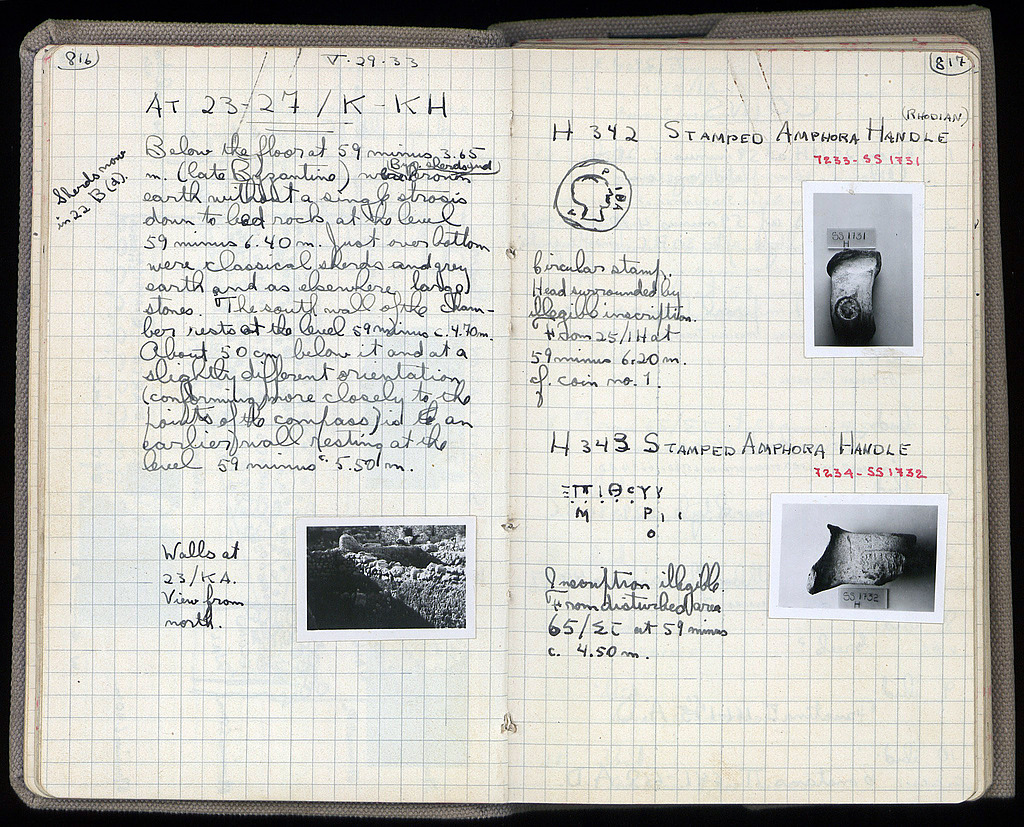 816
V·29·33
AT 23-27 / K-KH
Sherds now
in 22 B (2).
Below the floor at 59 minus 3.65
m. (late Byzantine) was brown
Byz. sherds and
earth without a single strosis
down to bed rock at the level
59 minus 6.40 m. Just over bottom
were classical sherds and grey
earth and as elsewhere large
stones. The south wall of the cham-
ber rests at the level 59 minus c. 4.70 m.
About 50 cm below it and at a
slightly different orientation
(conforming more closely to the
points of the compass) is an
earlier wall resting at the
level 59 minus c. 5.50 m.
Walls at
23/KA.
View from
north.
817
(RHODIAN)
H 342 STAMPED AMPHORA HANDLE
7233-SS 1731
SS 1731
H
Circular stamp.
Head surrounded by
illegible inscription.
From 25/IH at
59 minus 6.20 m.
cf. coin no. 1.
H 343 STAMPED AMPHORA HANDLE
7234-SS 1732
SS 1732
H
Inscription illegible.
From disturbed area
65/ΣΤ at 59 minus
c. 4.50 m.